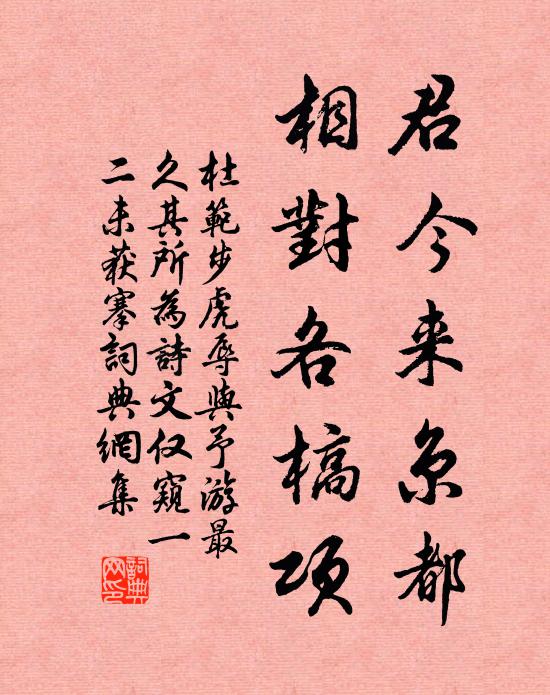 君今来京都
相對各槁項
杜範步虎辱與予游最
久其所為詩文仅窺一
二未获搴詞典網集
詞典
网印